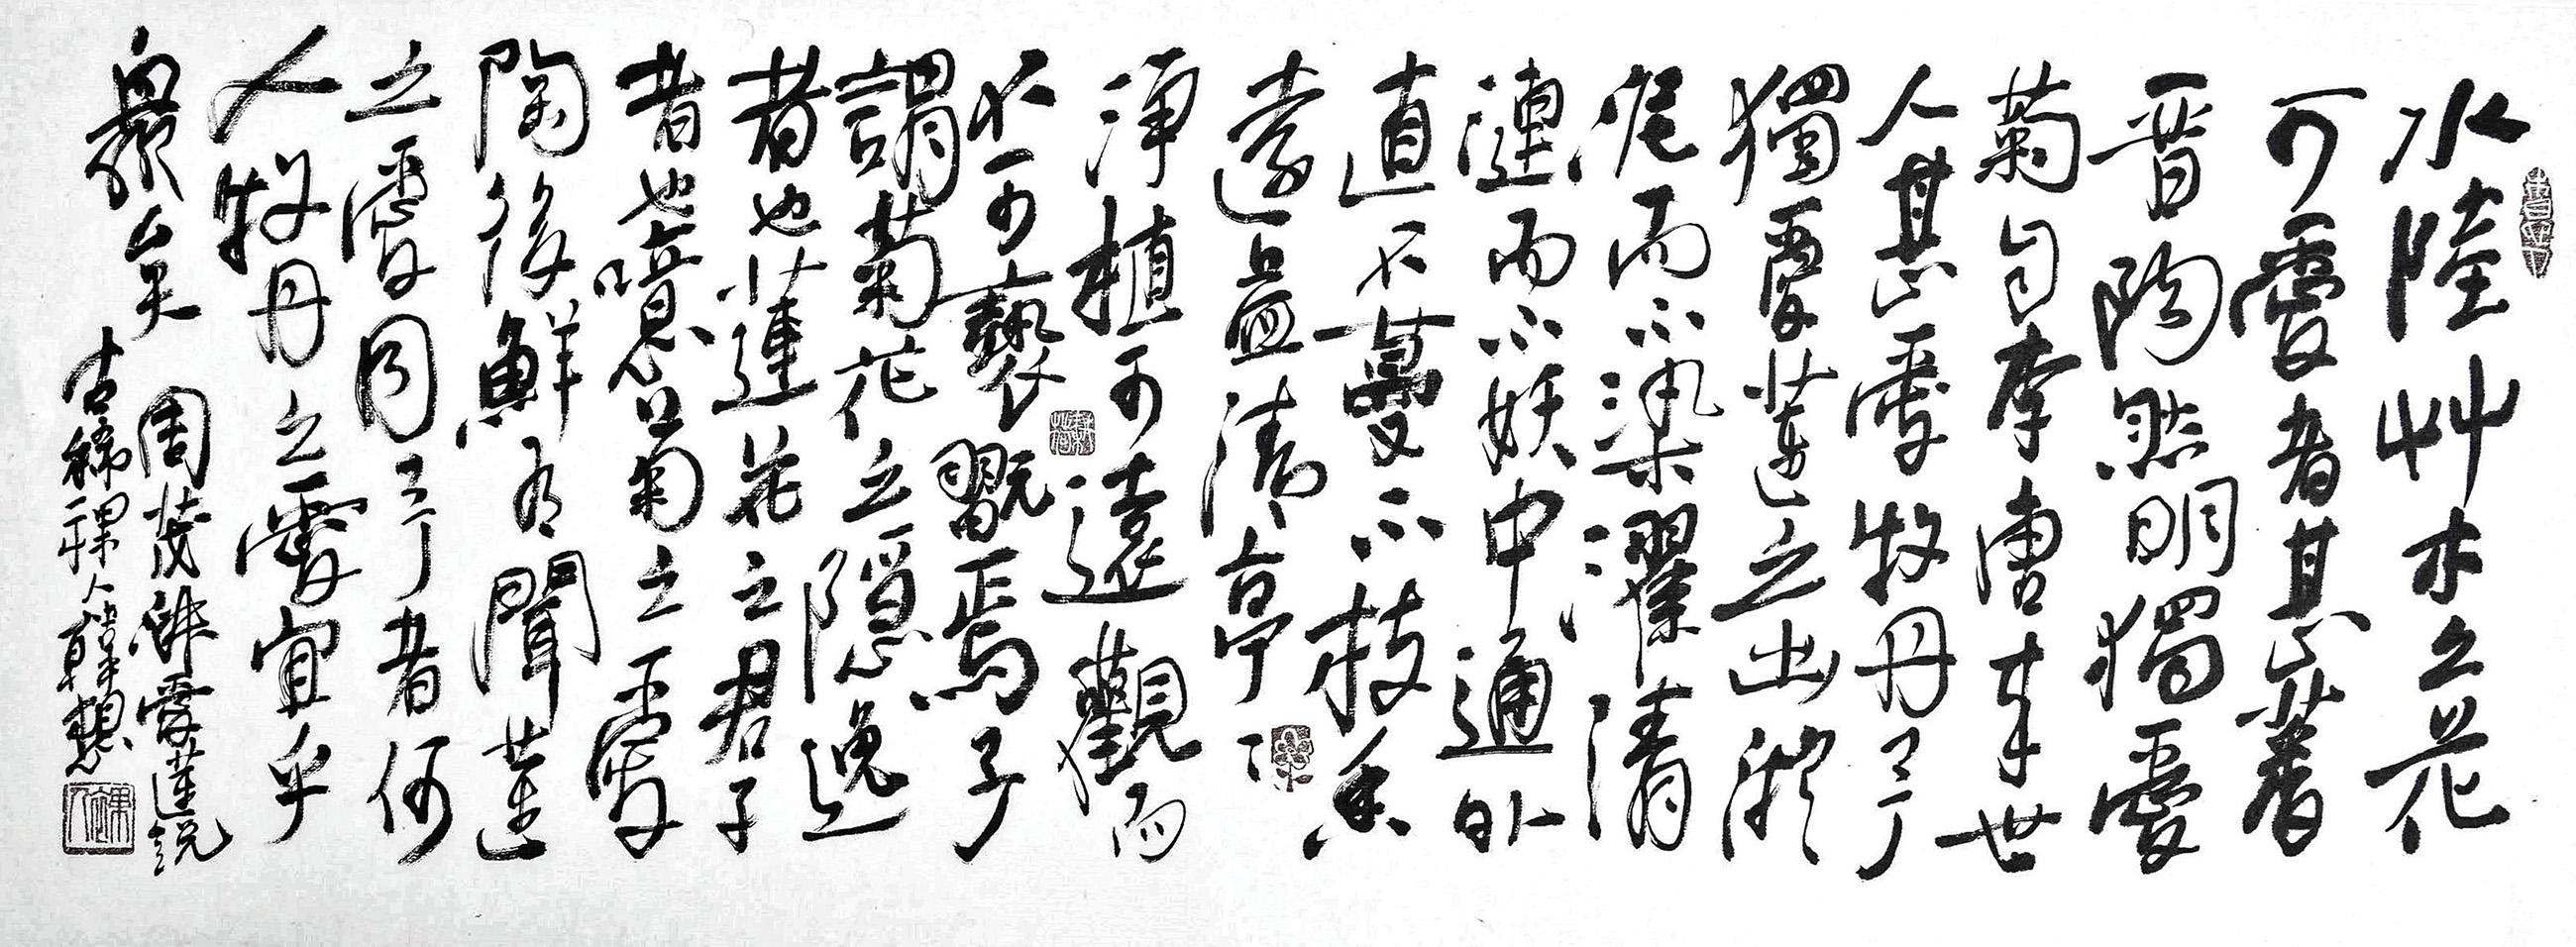 水陸艸木之花
可愛者甚蕃
晋陶明獨愛
菊自李唐来世
人甚愛牡丹予
獨愛蓮之出淤
泥而不染濯清
漣而不妖中通外
直不蔓不枝香
遠益清亭々
淨植可遠觀而
不可褻翫焉予
謂菊花之隱逸
者也蓮花之君子
者也噫菊之愛
陶後鮮有聞蓮
之愛同予者何
人牡丹之愛宜乎
衆矣
周茂叔愛蓮説
古稀人韓想